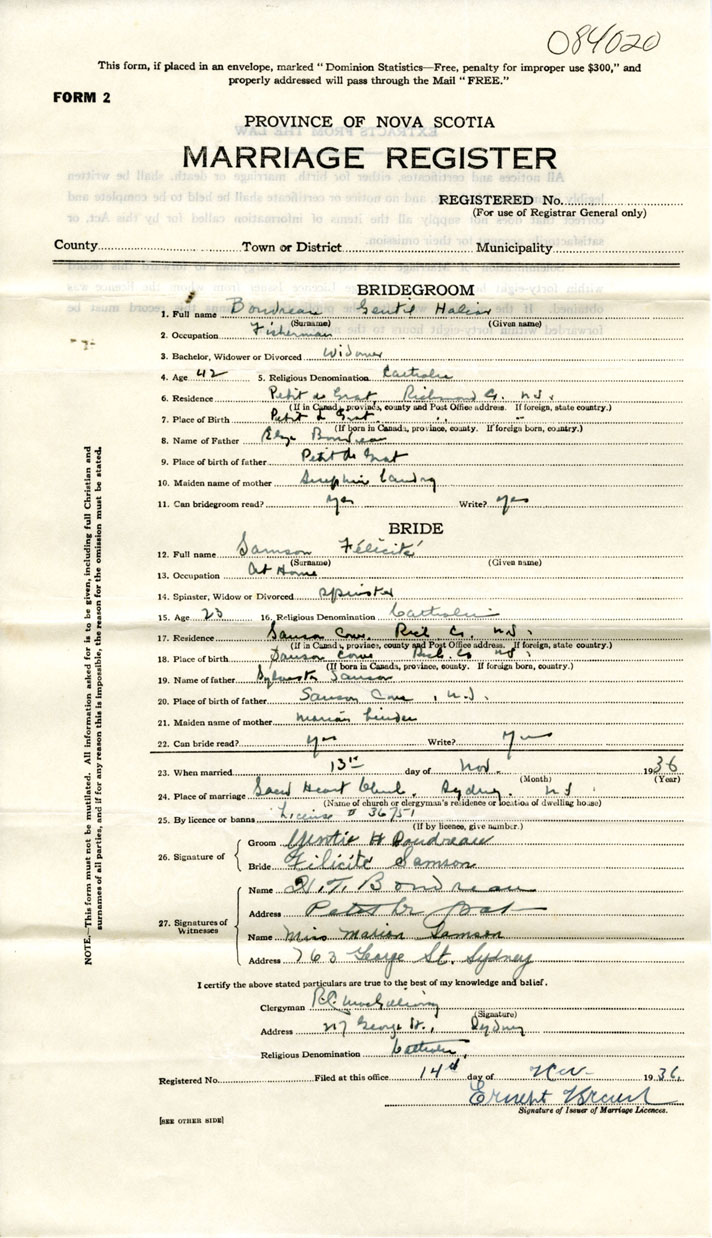 084020
This form, if placed in an envelope, marked " Dominion Statistics—Free, penalty for improper use $300," and
properly addressed will pass through the Mail " FREE."
FORM 2
PROVINCE OF NOVA SCOTIA
MARRIAGE REGISTER
REGISTERED No.
(For use of Registrar General only)
County Town or District Municipality
BRIDEGROOM
1. Full name Boudreau Gentil
(Surname) (Given name)
2. Occupation Fisherman
3. Bachelor, Widower or Divorced Widower
4. Age 42 5. Religious Denomination Catholic
6. Residence Petit de Grat, Richmond Co. N.S.
(If in Canada, province, county and Post Office address. If foreign, state country.)
7. Place of Birth Petit de Grat " "
(If born in Canada, province, county. If foreign born, country.)
8. Name of Father Boudreau
9. Place of birth of father Petit de Grat
10. Maiden name of mother Josephine Landry
11. Can bridegroom read? yes Write? yes
BRIDE
12. Full name Samson Félicité
(Surname) (Given name)
13. Occupation At Home
14. Spinster, Widow or Divorced Spinster
15. Age 23 16. Religious Denomination Catholic
17. Residence Samson Cove, Rich Co. N.S.
(If in Canada, province, county and Post Office address. If foreign, state country.)
18. Place of birth Samson Cove Rich Co N.S.
(If born in Canada, province, county. If foreign born, country.)
19. Name of father Sylvester Samson
20. Place of birth of father Samson Cove, N.S.
21. Maiden name of mother Marian
22. Can bride read? yes Write? yes
23. When married 13th day of Nov. 1936
(Month) (Year)
24. Place of marriage Sacred Heart Church, Sydney, N.S.
(Name of church or clergyman's residence or location of dwelling house)
25. By licence or banns License # 36751
(If by licence, give number.)
26. Signature of
Groom Gentil H Boudreau
Bride Félicité Samson
27. Signatures of Witnesses
Name H. T. Boudreau
Address Petit de Grat
Name Miss Marion Samson
Address 763 George St. Sydney
I certify the above stated particulars are true to the best of my knowledge and belief.
Clergyman
(Signature)
Address George St., Sydney
Religious Denomination Catholic
Registered No. Filed at this office 14th day of Nov 1936
Ernest
Signature of Issuer of Marriage Licences.
[SEE OTHER SIDE]
NOTE.—This form must not be mutilated. All information asked for is to be given, including full Christian and
surnames of all parties, and if for any reason this is impossible, the reason for the omission must be stated.